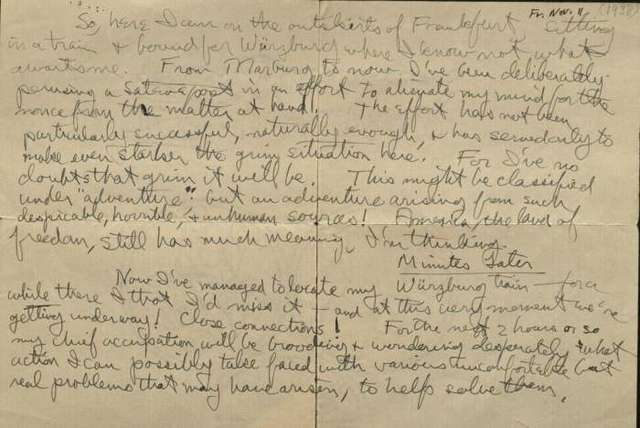 Fri. Nov. 11 (1938)
So, here I am on the outskirts of Frankfurt sitting
in a train & bound for Würzburg where I know not what
awaits me. From Marburg to now I've been deliberately
perusing a Satevepost in an effort to alienate my mind for the
nonce from the matter at hand! The effort has not been
particularly successful, naturally enough, & has served only to
make even starker the grim situation here. For I've no
doubts that grim it will be. This might be classified
under "adventure": but an adventure arising from such
despicable, horrible, & unhuman sources! America, the land of
freedom, still has much meaning, I'm thinking.
Minutes Later
Now I've managed to locate my Würzburg train — for a
while there I that I'd miss it — and at this very moment we're
getting underway! Close connections! For the next 2 hours or so
my chief occupation will be brooding & wondering desperately what
action I can possibly take faced with various uncomfortable but
real problems that may have arisen, to help solve them.